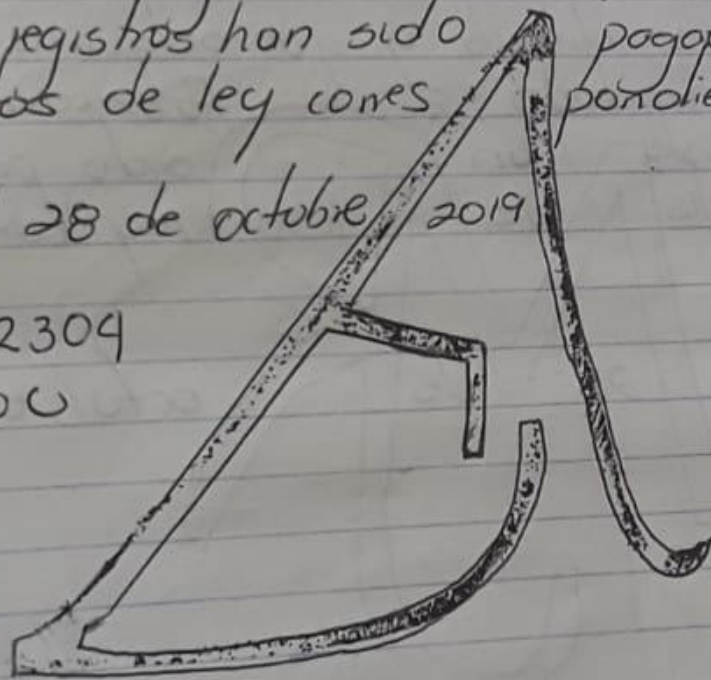 registros han sido
os de ley corres pondie
28 de octubre 2019
2304